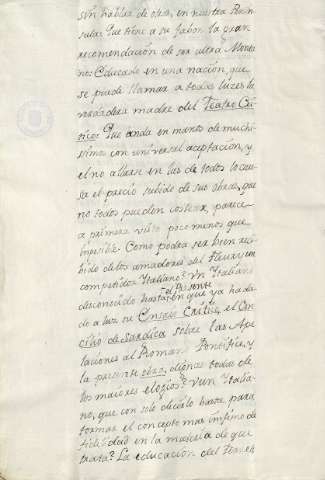 sin hablar de otra, en nuestra Penin
sula: Que tiene a su fabor la gran
recomendación de ser ultra Monta
no: Educado en una nación, que
se puede llamar a todas luzes la
verdadera madre del Teatro Cri
tico: Que anda en manos de muchi
simos con universal aceptación, y
el no allarse en las de todos lo cau
sa el precio subido de sus obras, que
no todos pueden costear, parece
a primera vista poco menos que
imposible. Como podra ser bien reci
bido de los amadores del Fleuri, un
competidor Italiano? Un Italiano
desconocido hasta el presente en que ya ha da
do a luz su Ensaio Critico, el Con
cilio de Sardica sobre las Ape
laciones al Romano Pontifice, y
la presente obra, dignas todas de
los maiores elogios? Y un Italia
no, que con solo decirlo basta para
formar el concepto mas infimo de
fidelidad en la materia de que
trata? La educacion del Frances